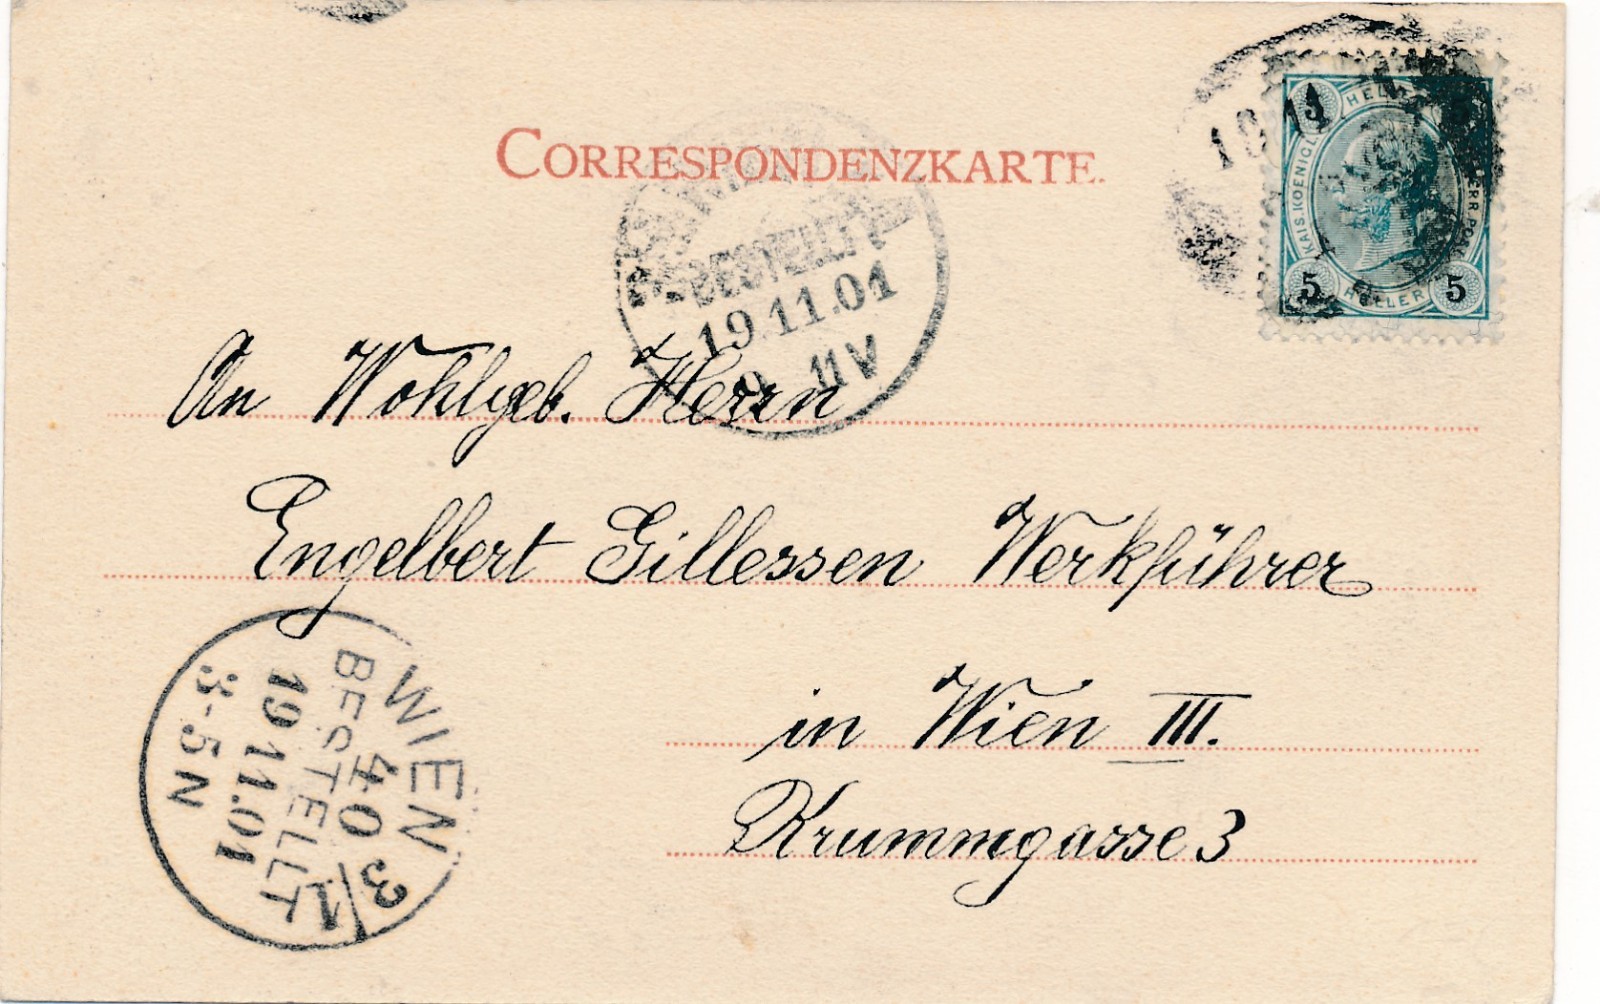 CORRESPONDENZKARTE.
HELLER
KAIS. KOENIGL.
5
5
HELLER
BESTELLT
19.11.01
An Wohlgeb. Herrn
Engelbert Gillessen Werkführer
in Wien III.
Krummgasse 3
WIEN 3/1
40
BESTELLT
19 11.01
3-5 N